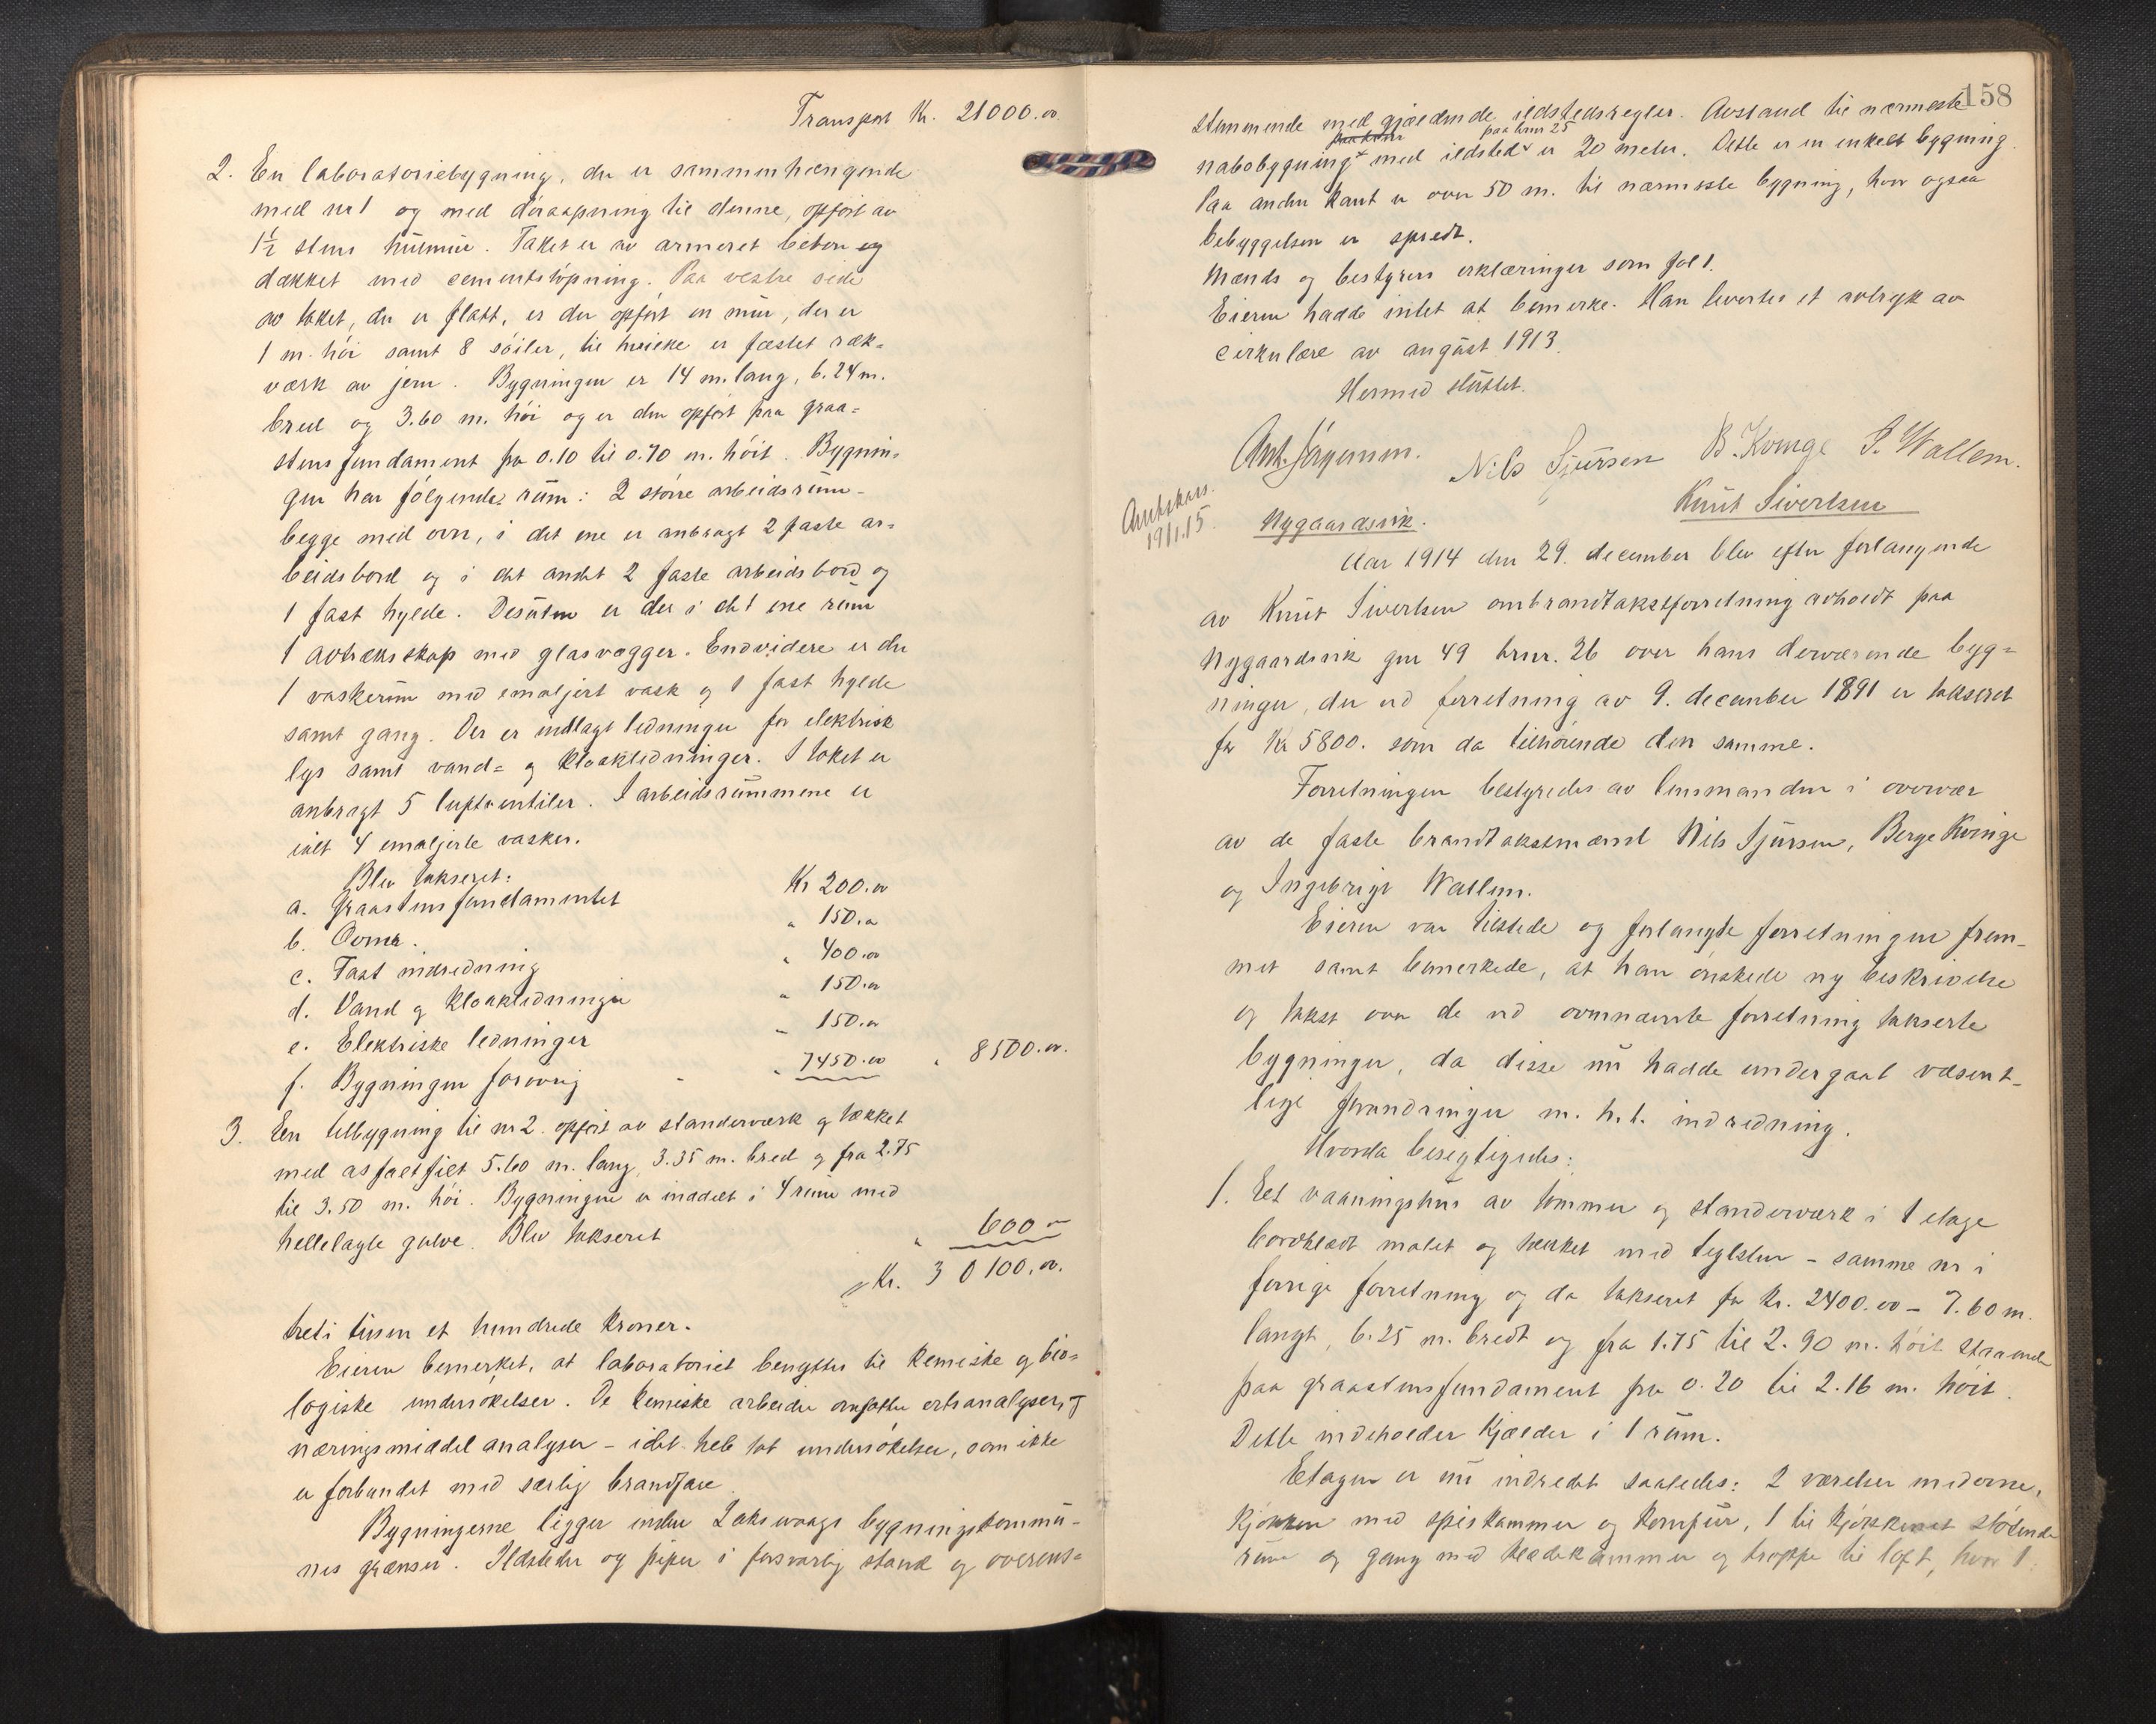 Transport Kr. 21000.00
2. En laboratoriebygning, der er sammenhængende
med nr 1 og med døraapning til denne, opført av
1½ stens husmur. Taket er av armeret beton og
dækket med cementstøpning. Paa vestre side
av taket, der er flatt, er der opført en mur, der er
1 m. høi samt 8 søiler, til hvilke er fæstet ræk=
værk av jern. Bygningen er 14 m. lang, 6.24 m.
bred og 3.60 m. høi og er den opført paa graa=
stensfundament fra 0.10 til 0.70 m. høit. Bygnin=
gen har følgende rum: 2 større arbeidsrum -
begge med ovn, i det ene er anbragt 2 faste ar=
beidsbord og i det andet 2 faste arbeidsbord og
1 fast hylde. Desuten er der i det ene rum
1 avtræksskap med glasvægger. Endvidere er der
1 vaskerum med emaljert vask og 1 fast hylde
samt gang. Der er indlagt ledninger for elektrisk
lys samt vand= og kloakledninger. I taket er
anbragt 5 luftventiler. I arbeidsrummene er
ialt 4 emaljerte vasker.
Blev takseret:
a. Graastensfundamentet Kr 200.00
b. Ovner. " 150.00
c. Fast indredning " 400.00
d. Vand og kloakledninger " 150.00
e. Elektriske ledninger " 150.00
f. Bygningen forøvrig - " 7450.00 " 8500.00.
3. Een tilbygning til nr 2. opført av standerværk og tækket
med asfaltfilt 5.60 m. lang, 3.35 m. bred og fra 2.75
til 3.50 m. høi. Bygningen er inddelt i 4 rum med
hellelagte gulve. Blev takseret " 600 -
Kr. 30100.00.
treti tusen et hundrede kroner.
Eieren bemerket, at laboratoriet benyttes til kemiske og bio=
logiske undersøkelser. De kemiske arbeider omfatter ertsanalyser, og
næringsmiddel analyser - idet hele tat undersøkelser, som ikke
er forbundet med særlig brandfare.
Bygningerne ligger inden Laksevaags bygningskommu-
nes grænser. Ildsteder og piper i forsvarlig stand og overens=
158
stemmende med gjældende ildstedsregler. Avstand til nærmeste
paa brnr 25
nabobygning med ildsted er 20 meter. Dette er en enkelt bygning.
Paa anden kant er over 50 m. til nærmeste bygning, hvor ogsaa
bebyggelsen er spredt.
Mænds og bestyrers erklæringer som fol 1.
Eieren hadde intet at bemerke. Han levertes et avtryk av
cirkulære av august 1913.
Hermed sluttet.
Ant. Jørgensen. Nils Sjursen B. Kvinge I. Wallem.
Knut Sivertsen
Amtskass.
19/1.15.
Nygaardsvik.
Aar 1914 den 29. december blev efter forlangende
av Knut Sivertsen ombrandtakstforretning avholdt paa
Nygaardsvik gnr 49 brnr. 26 over hans derværende byg=
ninger, der ved forretning av 9. december 1891 er takseret
for Kr 5800. som da tilhørende den samme.
Forretningen bestyredes av lensmanden i overvær
av de faste brandtakstmænd Nils Sjursen, Berge Kvinge
og Ingebrigt Wallem.
Eieren var tilstede og forlangte forretningen frem-
met samt bemerkede, at han ønskede ny beskrivelse
og takst over de ved ovennævnte forretning takserte
bygninger, da disse nu hadde undergaat væsent-
lige forandringer m. h. t. indredning.
Hvorda besigtigedes:
1. Eet vaaningshus av tømmer og standerværk i 1 etage
bordklædt malet og tækket med teglsten - samme nr i
forrige forretning og da takseret for kr. 2400.00 - 7.60 m.
langt, 6.25 m. bredt og fra 1.75 til 2.90 m. høit staaende
paa graastensfundament fra 0.20 til 2.16 m. høit.
Dette indeholder kjælder i 1 rum.
Etagen er nu indredet saaledes: 2 værelser m. ovne,
kjøkken med spiskammer og komfur, 1 til kjøkkenet støtende
rum og gang med klædekammer og trappe til loft, hvor 1